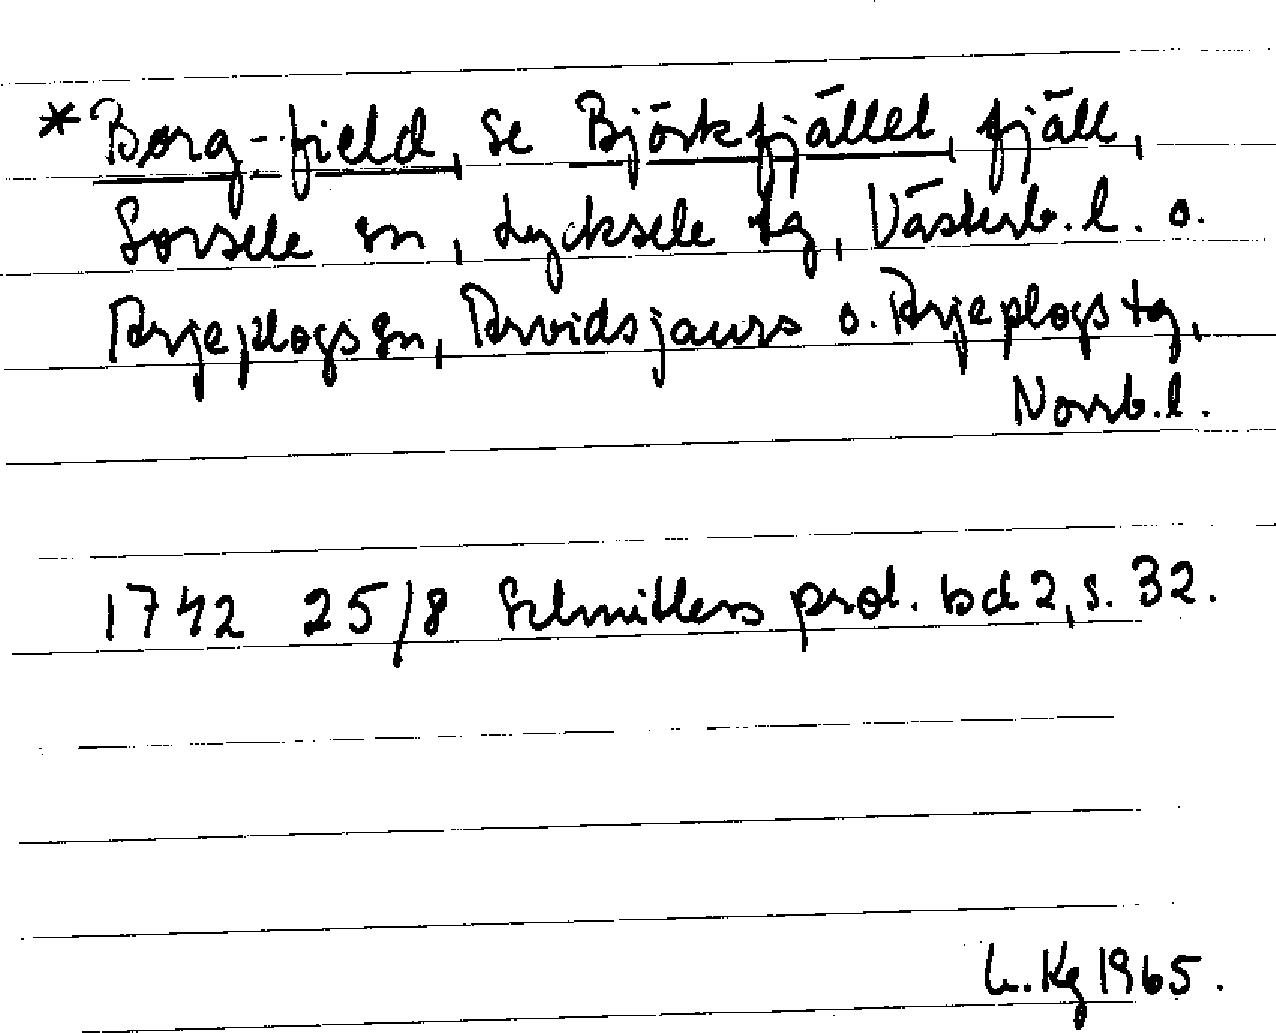 *Børg-field, se Björkfjället, fjäll,
Sorsele sn, Lycksele tg, Västerb. l. o.
Arjeplogs sn, Arvidsjaurs o. Arjeplogs tg,
Norrb. l.
1742 25/8 Schnitlers prot. bd 2, s. 32.
L. Kg 1965.